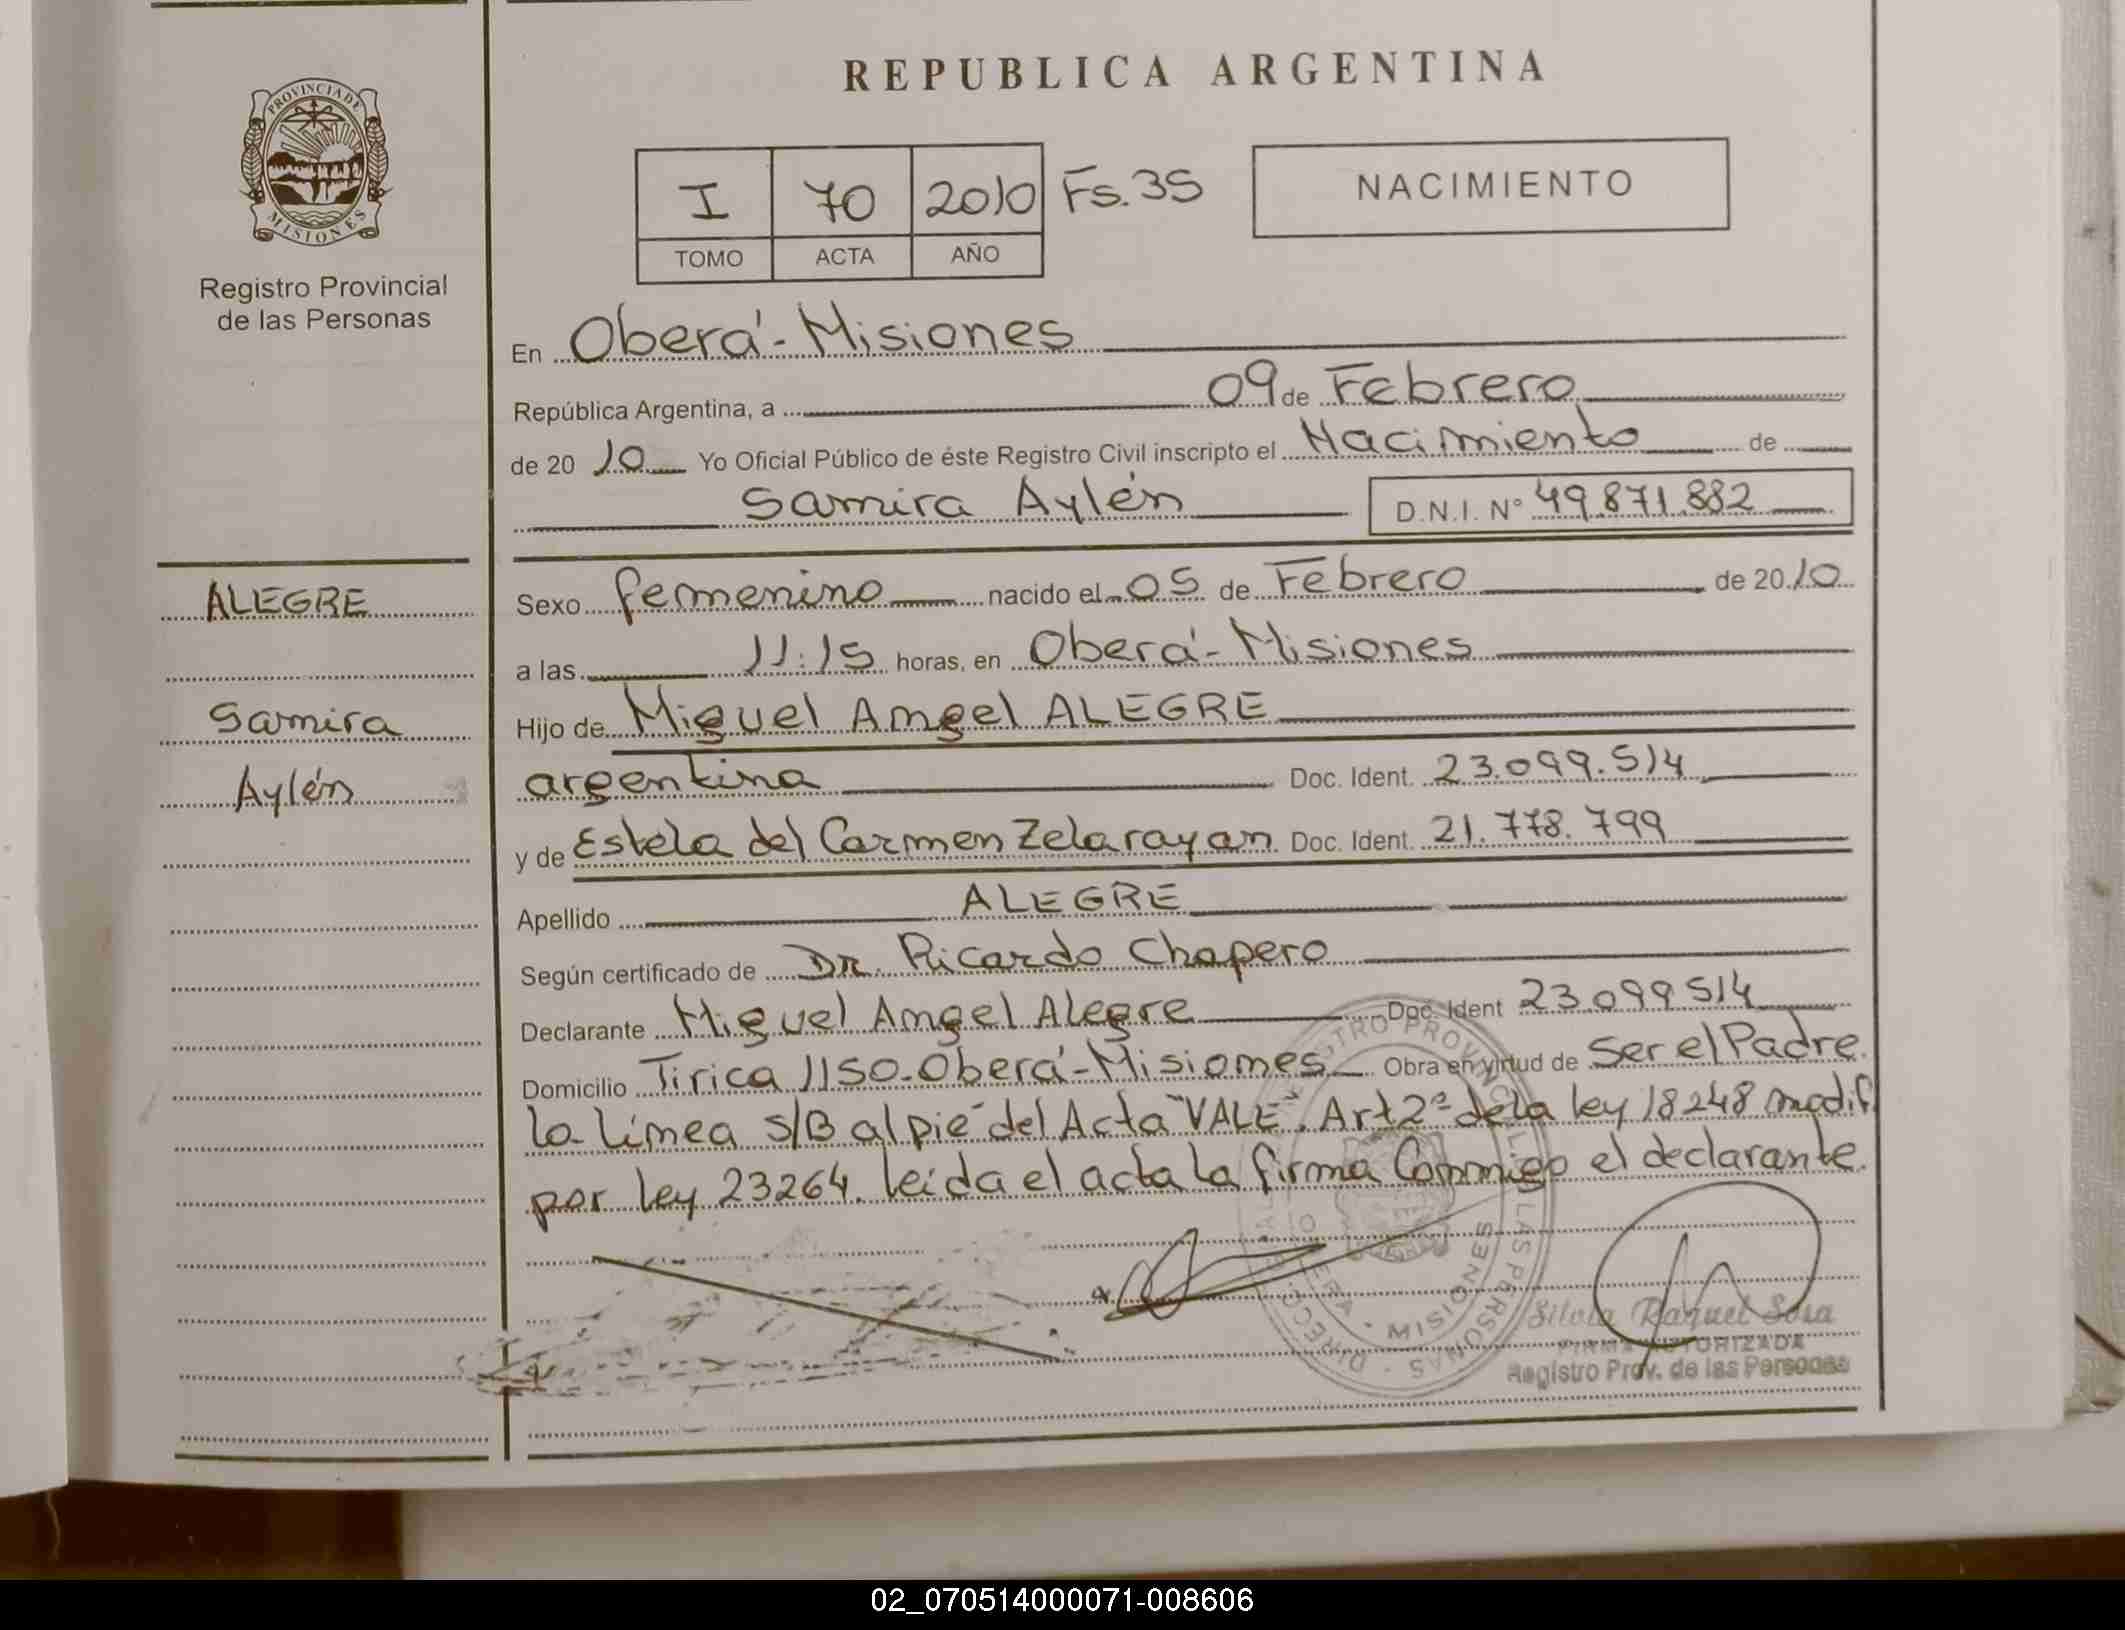 REPUBLICA ARGENTINA
PROVINCIA DE
MISIONES
Registro Provincial
de las Personas
I 70 2010 Fs. 35
TOMO ACTA AÑO
NACIMIENTO
En Oberá - Misiones
República Argentina, a 09 de Febrero
de 2010 Yo Oficial Público de éste Registro Civil inscripto el Nacimiento de
Samira Aylén D.N.I. Nº 49.871.882
ALEGRE
Samira
Aylén
Sexo femenino nacido el 05 de Febrero de 2010
a las 11:15 horas, en Oberá - Misiones
Hijo de Miguel Angel ALEGRE
argentina Doc. Ident. 23.099.514
y de Estela del Carmen Zelarayan Doc. Ident. 21.778.799
Apellido ALEGRE
Según certificado de DR. Ricardo Chapero
Declarante Miguel Angel Alegre Doc. Ident 23.099514
Domicilio Tirica 1150-Oberá-Misiones Obra en virtud de Ser el Padre.
la línea S/B al pié del Acta "VALE". Art 2º de la ley 18248 modif.
por ley 23264. leída el acta la firma Conmigo el declarante.
Silvia Raquel Sosa
FIRMA AUTORIZADA
Registro Prov. de las Personas
MISIONES
02_070514000071-008606